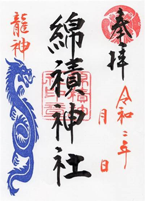 奉拝
令和二年
月
日
綿積神社
龍神